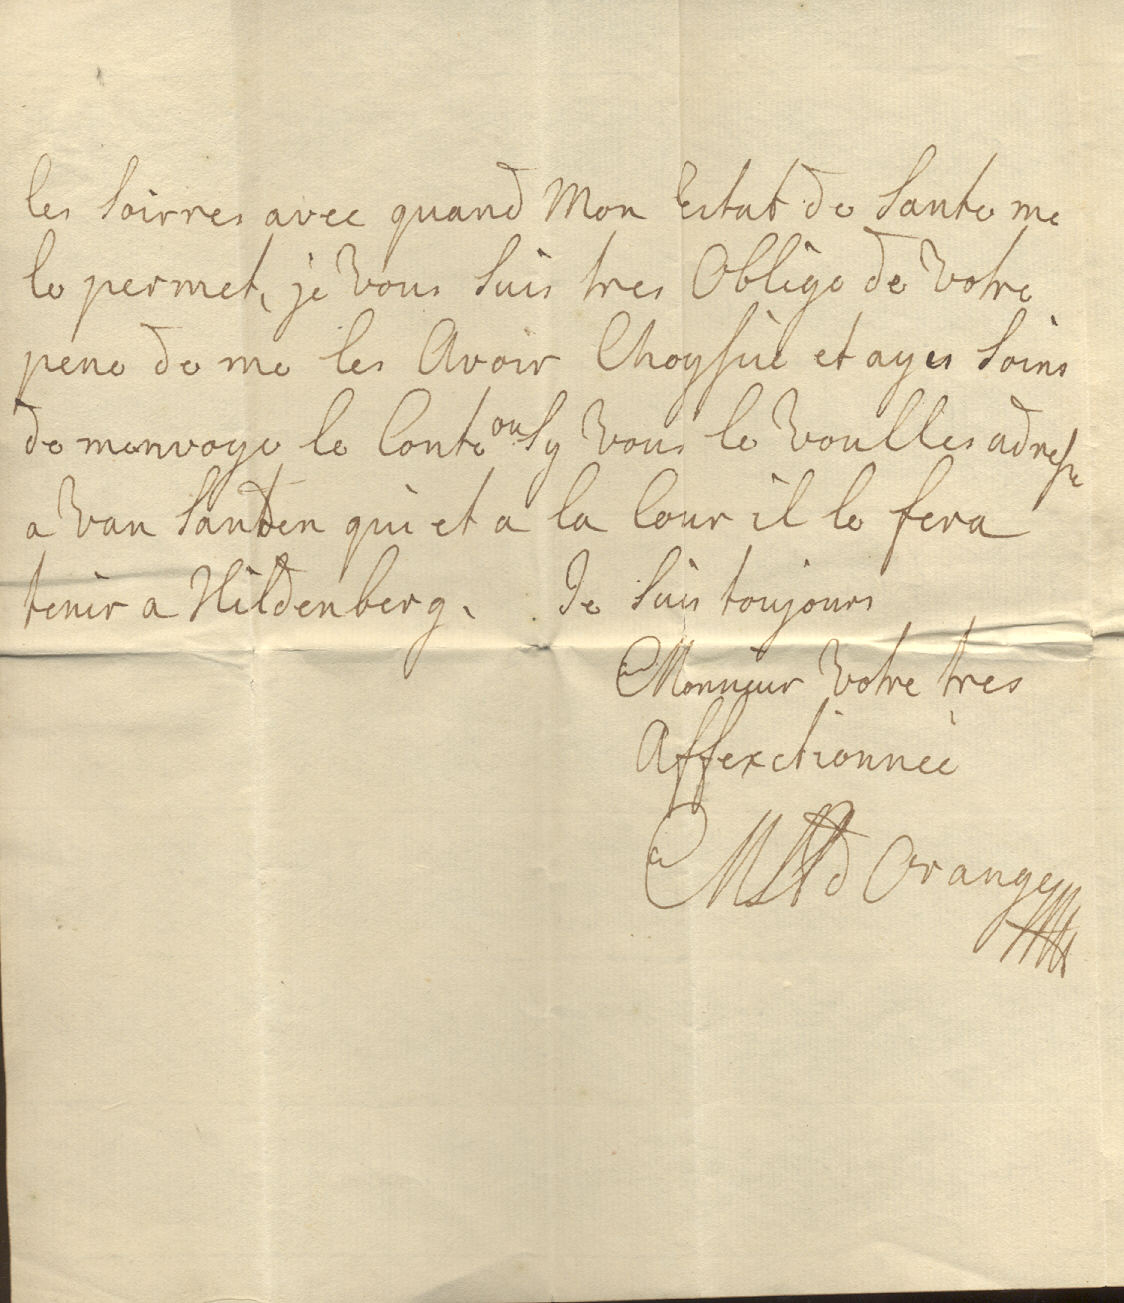 les soirres avec quand Mon Estat de Sante me
le permet, je vous suis tres Oblige de votre
pene de me les Avoir Choysiè et ayes soins
de menvoye le Conte ou sy vous le voulles adresse
a van Sanden qui et a la Cour il le fera
tenir a Hildenberg. Je suis toujours
Monsieur votre tres
Affexctionneè
d Orange